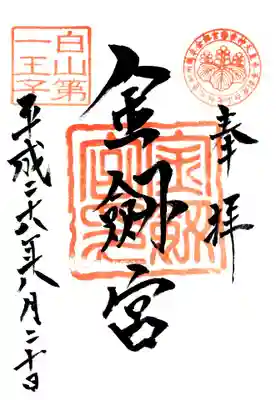 奉拝
金劔宮
平成二十八年八月二十日
白山第
一王子